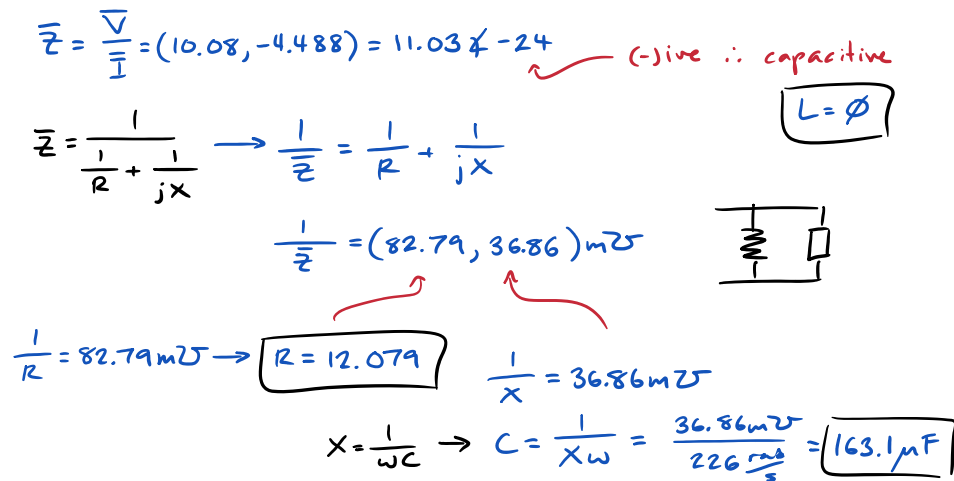 Z̅ = V̅/I̅ = (10.08, -4.488) = 11.03 ∠ -24
(-)ive ∴ capacitive
L = ∅
Z̅ = 1/(1/R + 1/jX) → 1/Z̅ = 1/R + 1/jX
1/Z̅ = (82.79, 36.86) m℧
1/R = 82.79 m℧ → R = 12.079
1/X = 36.86 m℧
X = 1/ωC → C = 1/Xω = 36.86 m℧/226 rad/s = 163.1 μF